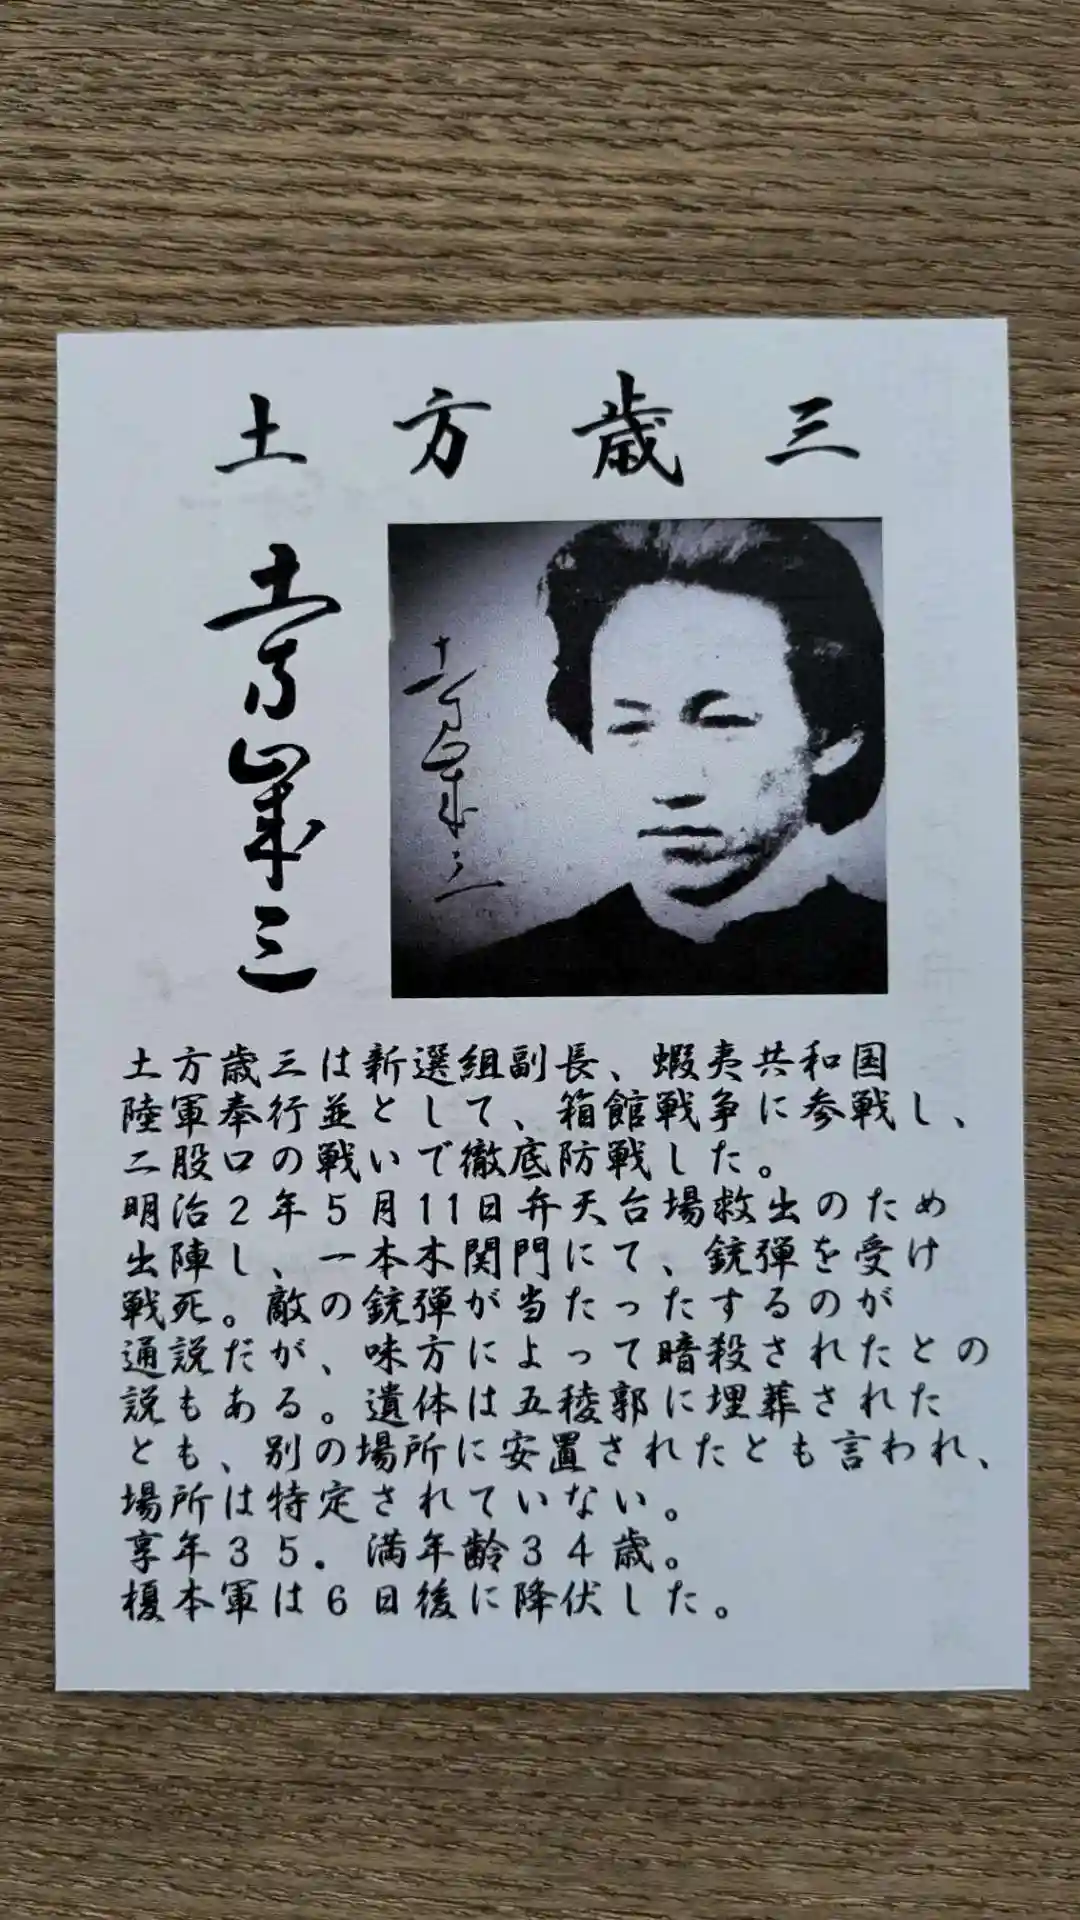 土方歳三
土方歳三
土方歳三
土方歳三は新選組副長、蝦夷共和国
陸軍奉行並として、箱館戦争に参戦し、
二股口の戦いで徹底防戦した。
明治2年5月11日弁天台場救出のため
出陣し、一本木関門にて、銃弾を受け
戦死。敵の銃弾が当たったするのが
通説だが、味方によって暗殺されたとの
説もある。遺体は五稜郭に埋葬された
とも、別の場所に安置されたとも言われ、
場所は特定されていない。
享年35．満年齢34歳。
榎本軍は6日後に降伏した。